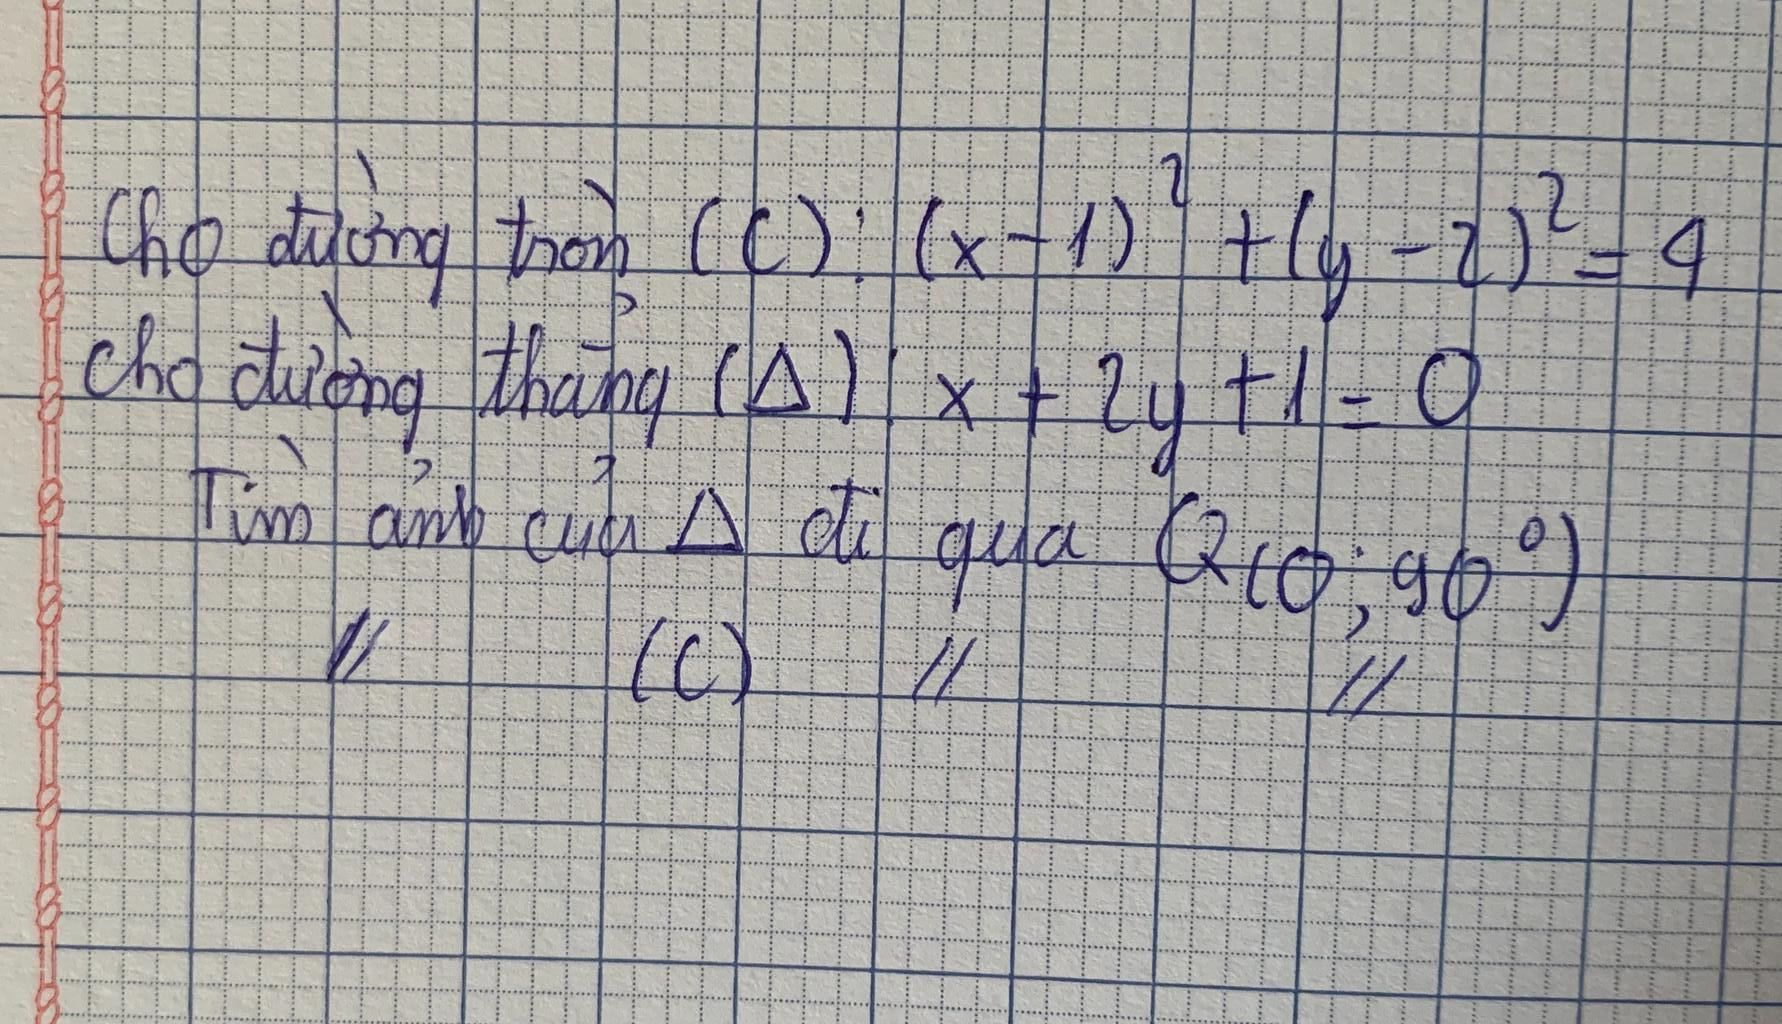 Cho đường tròn (C): (x-1)² + (y-2)² = 4
Cho đường thẳng (Δ): x + 2y + 1 = 0
Tìm ảnh của Δ đi qua Q(O; 90°)
// (C) // //